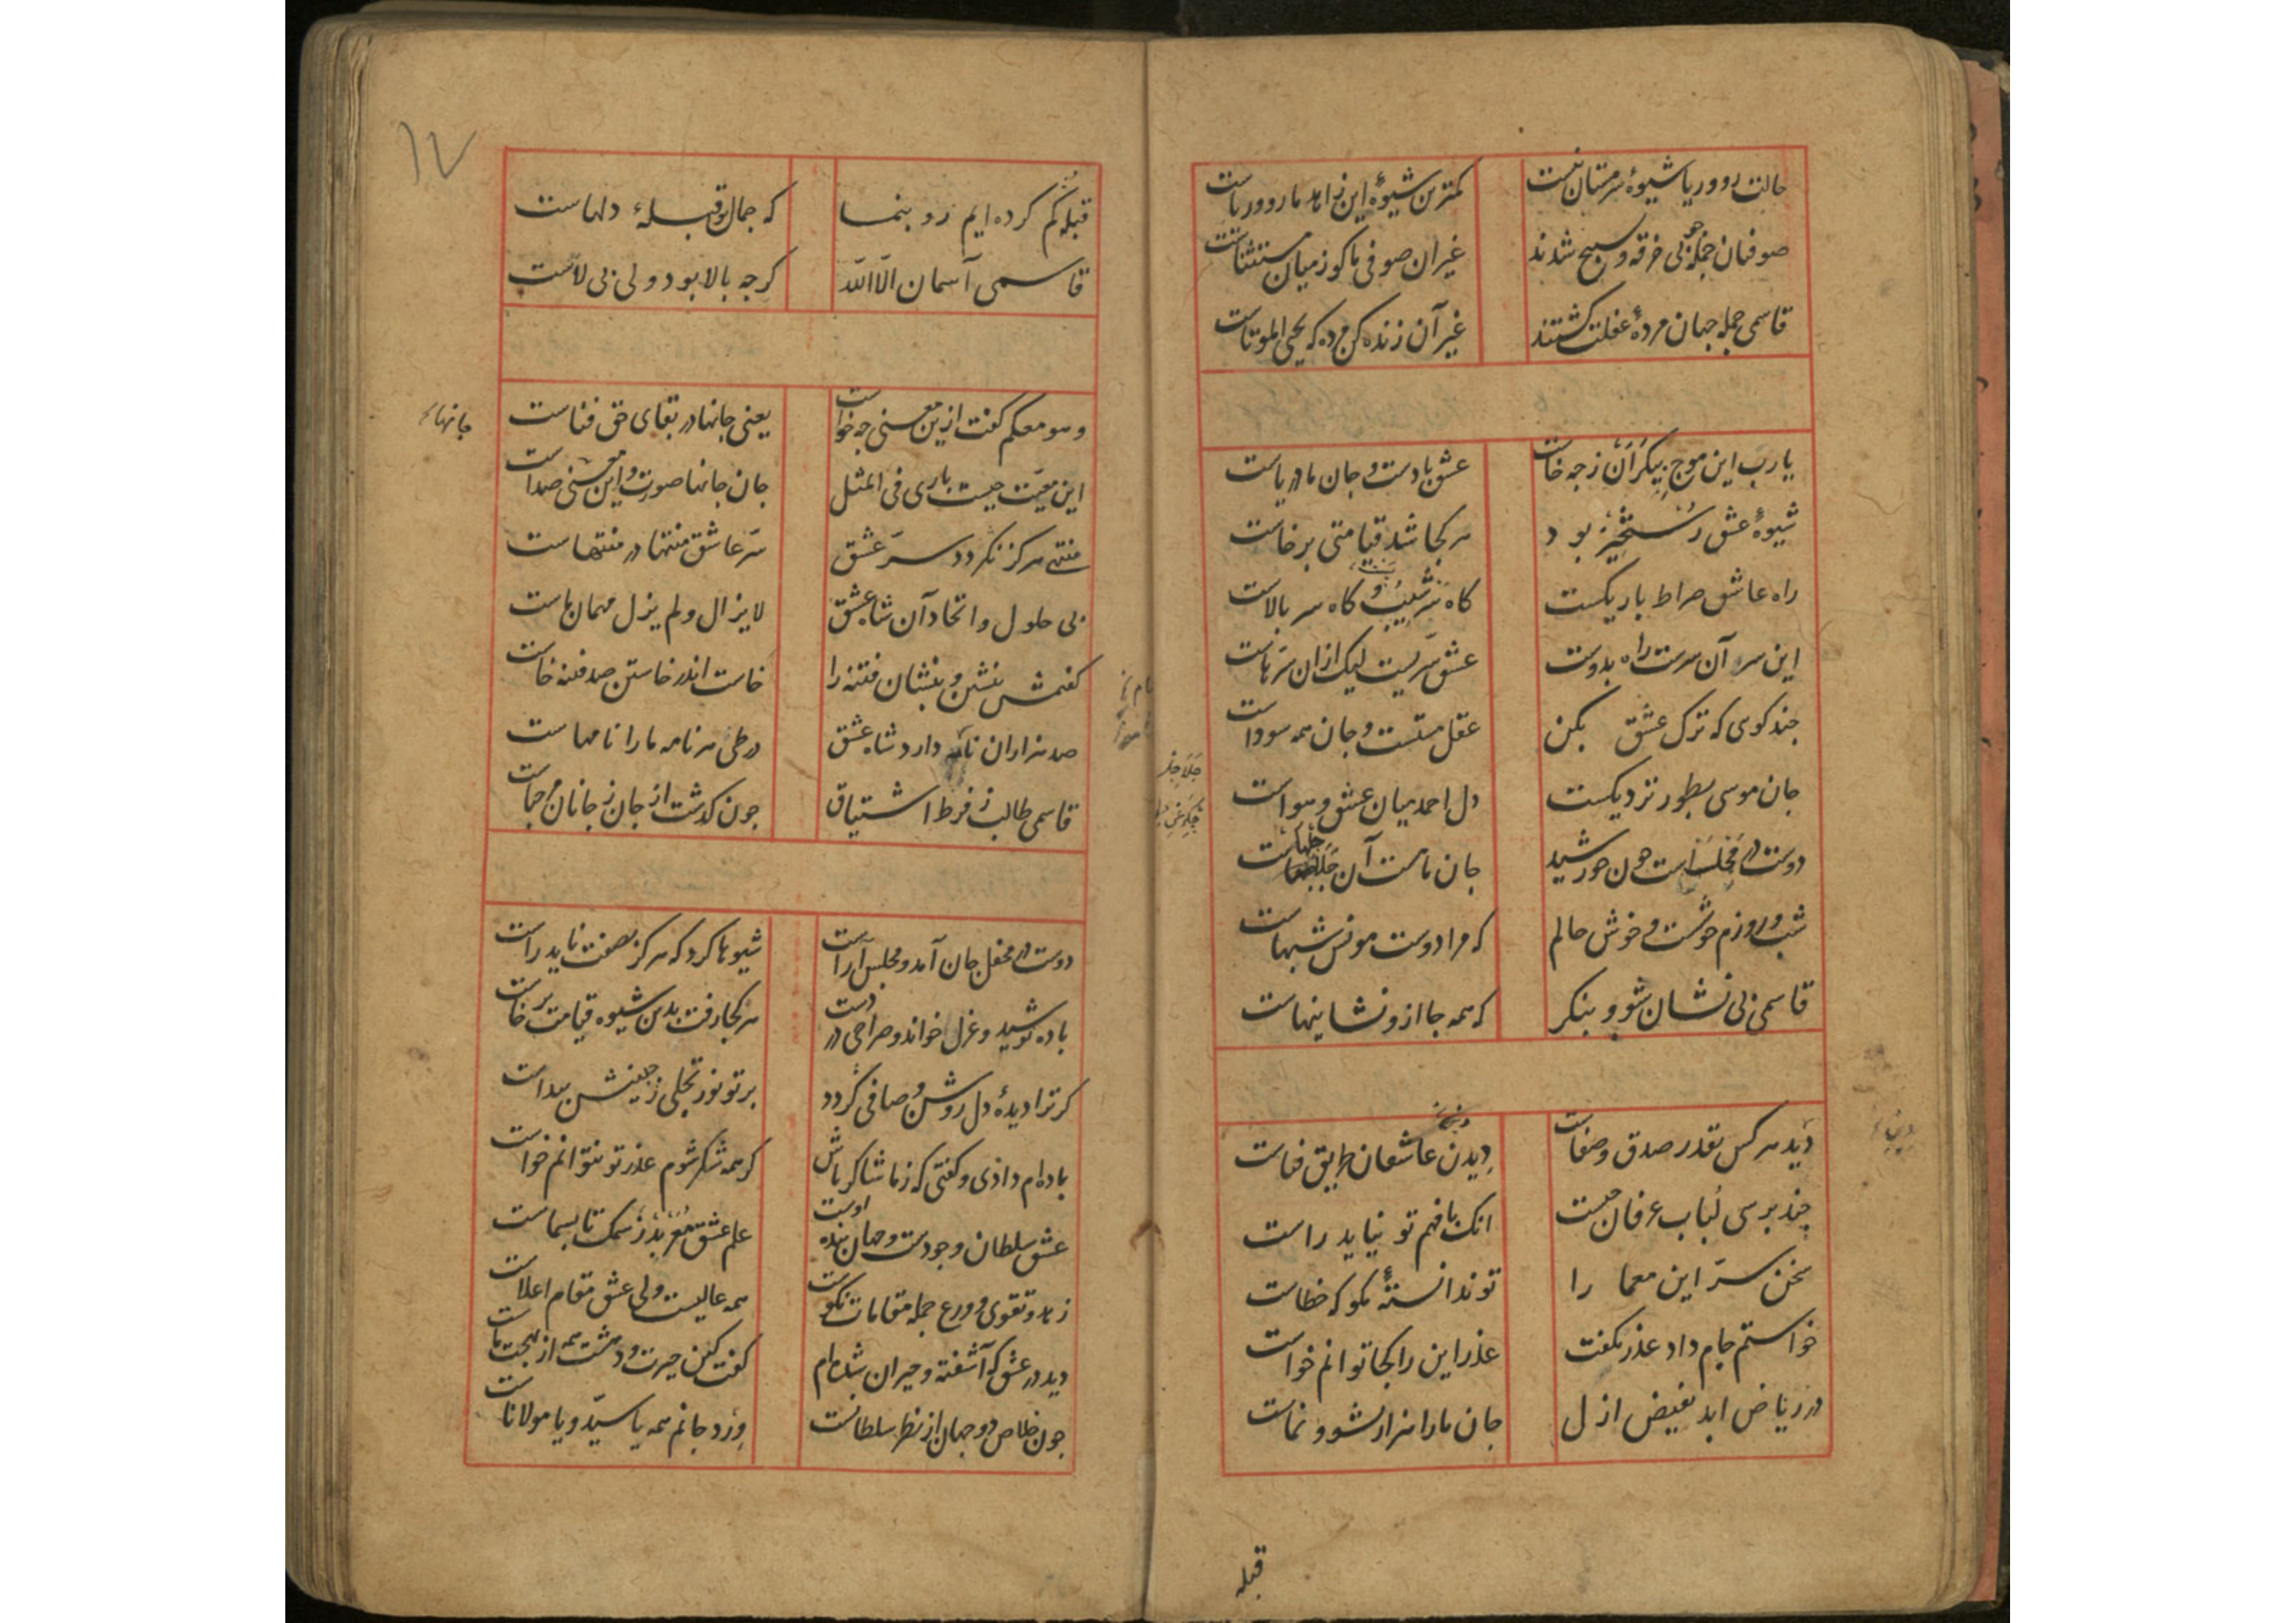 حالت رو و ریا شیوهٔ سرمستان نیست کمترین شیوهٔ این زاهد ما رو و ریاست
صوفیان جمله پی خرقه و تسبیح شدند غیر آن صوفی ما کو ز میان مستثناست
قاسمی جمله جهان مردهٔ غفلت گشتند غیر آن زنده کن مرده که یحیی الموتاست
یا رب این موج بیکران ز چه خاست عشق بادست و جان ما دریاست
شیوهٔ عشق رستخیز بود هر کجا شد قیامتی برخاست
راه عاشق صراط باریکست گاه سر شیب و گاه سر بالاست
این سر آن سرست راه بدوست عشق سریست لیک ازان سرهاست
چند گوی که ترک عشق بکن عقل مستست و جان همه سوداست
جان موسی بطور نزدیکست دل احمد میان عشق و هواست
دوست در مجلس است چون خورشید جان ما مست آن
شب و روزم خوشست و خوش حالم که مرا دوست مونس شبهاست
قاسمی بی نشان شو و بنگر که همه جا ازو نشانیهاست
دید هر کس بقدر صدق و صفاست دیدن عاشقان طریق فناست
چند پرسی لباب عرفان چیست انک با فهم تو نیاید راست
سخن سر این معما را تو ندانستهٔ مگو که خطاست
خواستم جام داد عذر نگفت عذر این را کجا توانم خواست
در ریاض ابد بفیض ازل جان ما را هزار نشو و نماست
قبله
۱۷
قبله گم کرده ایم رو بنما که جمال تو قبلهٔ دلهاست
قاسمی آسمان الا الله گرچه بالا بود ولی بی لاست
و هو معکم گفت ازین معنی چه خواست یعنی جانها در بقای حق فناست
جانها
این معیت چیست باری فی المثل جان جانها صورت و این معنی صداست
منتهی هرگز نگردد سر عشق سر عاشق منتها در منتهاست
بی حلول و اتحاد آن شاه عشق لایزال و لم یزل مهمان ماست
گفتمش بنشین و بنشان فتنه را خاست اندر خاستن صد فتنه خاست
صد هزاران نامه دارد شاه عشق در طی هر نامه ما را نامهاست
قاسمی طالب ز فرط اشتیاق چون گذشت از جان ز جانان
دوست در محفل جان آمد و مجلس آراست شیوها کرد که هرگز بصفت ناید راست
باده نوشید و غزل خواند و صراحی در دست هر کجا رفت بدین شیوه قیامت برخاست
گر ترا دیدهٔ دل روشن و صافی گردد پرتو نور تجلی ز جبینش پیداست
باده ام دادی و گفتی که ز ما شاکر باش گر همه شکر شوم عذر تو نتوانم خواست
عشق سلطان وجودست و جهان بنده اوست علم عشق ز سمک تا بسماست
زهد و تقوی و ورع جمله مقامات نکوست همه عالیست ولی عشق مقام اعلاست
دید در عشق که آشفته و حیران شده ام گفت کین حیرت و دهشت همه از بهجت ماست
چون خلاص دو جهان از نظر سلطانست ورد جانم همه یا سید و یا مولاناست